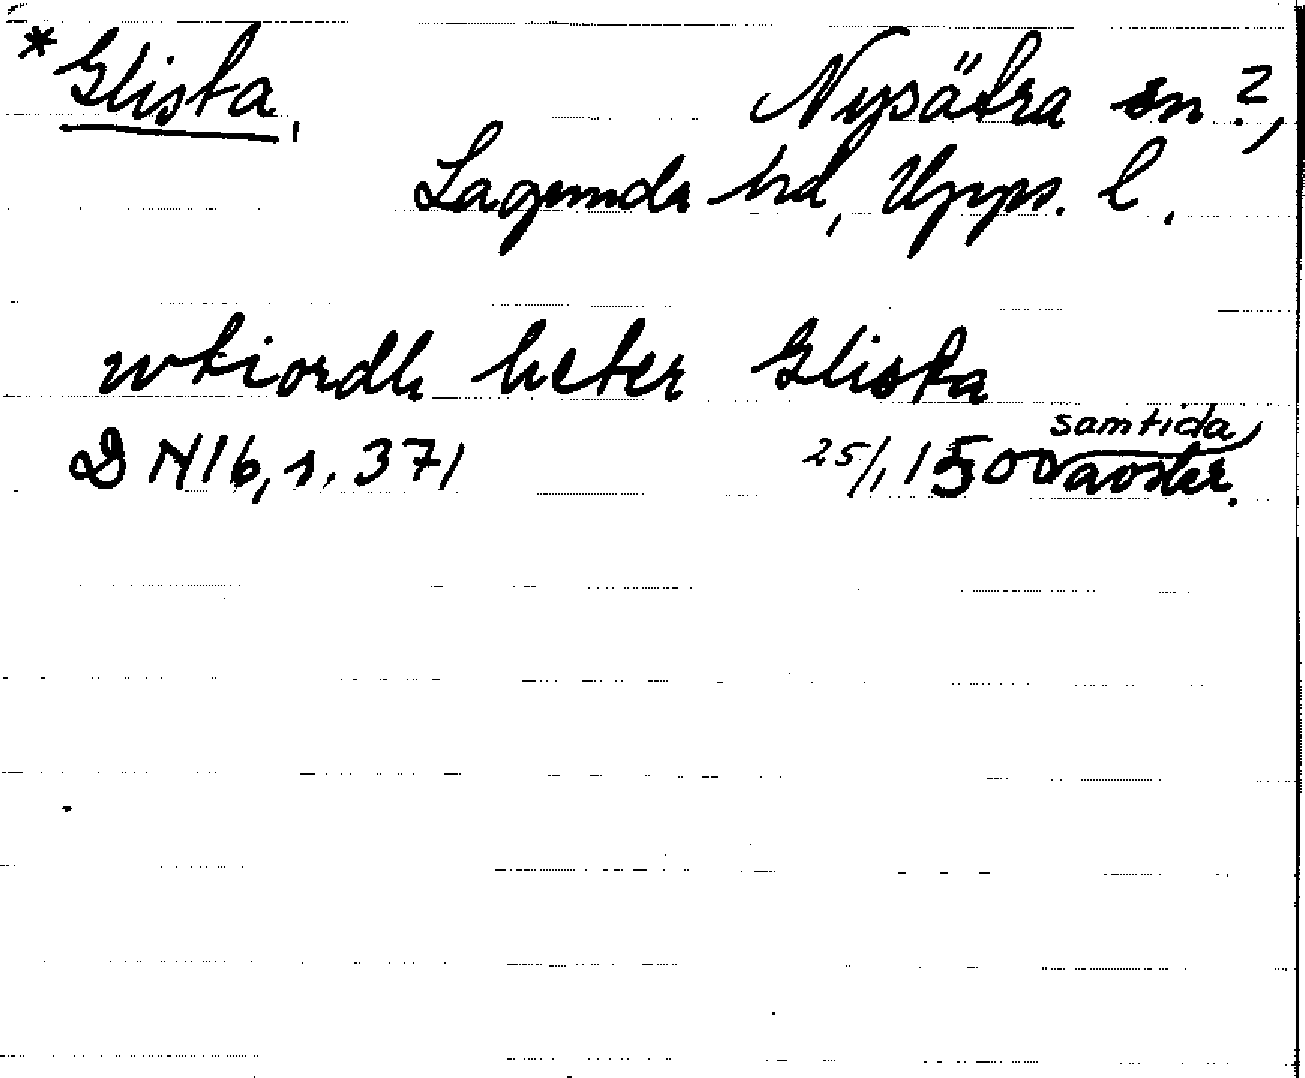 *Glista, Nysätra sn?,
Lagunda hd, Upps. l.
wtiordh heter Glista
samtida
DN 16, s. 371 25/1 1500 avskr.